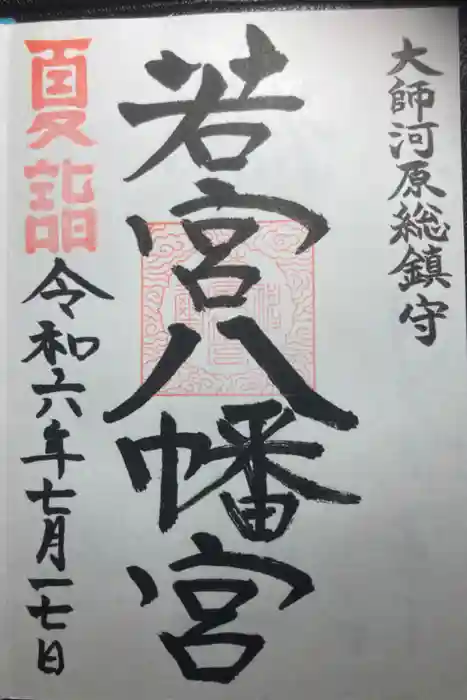 大師河原総鎮守
若宮八幡宮
夏詣
令和六年七月一七日